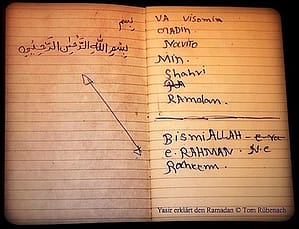 بسم
بسم الله الرحمن الرحيم
VA
MIN
Shahri
RAmadan.
BismiALLAH - e - va
e. RAHMAN. N.e
Raheem.
Yasir erklärt den Ramadan © Tom Rübenach